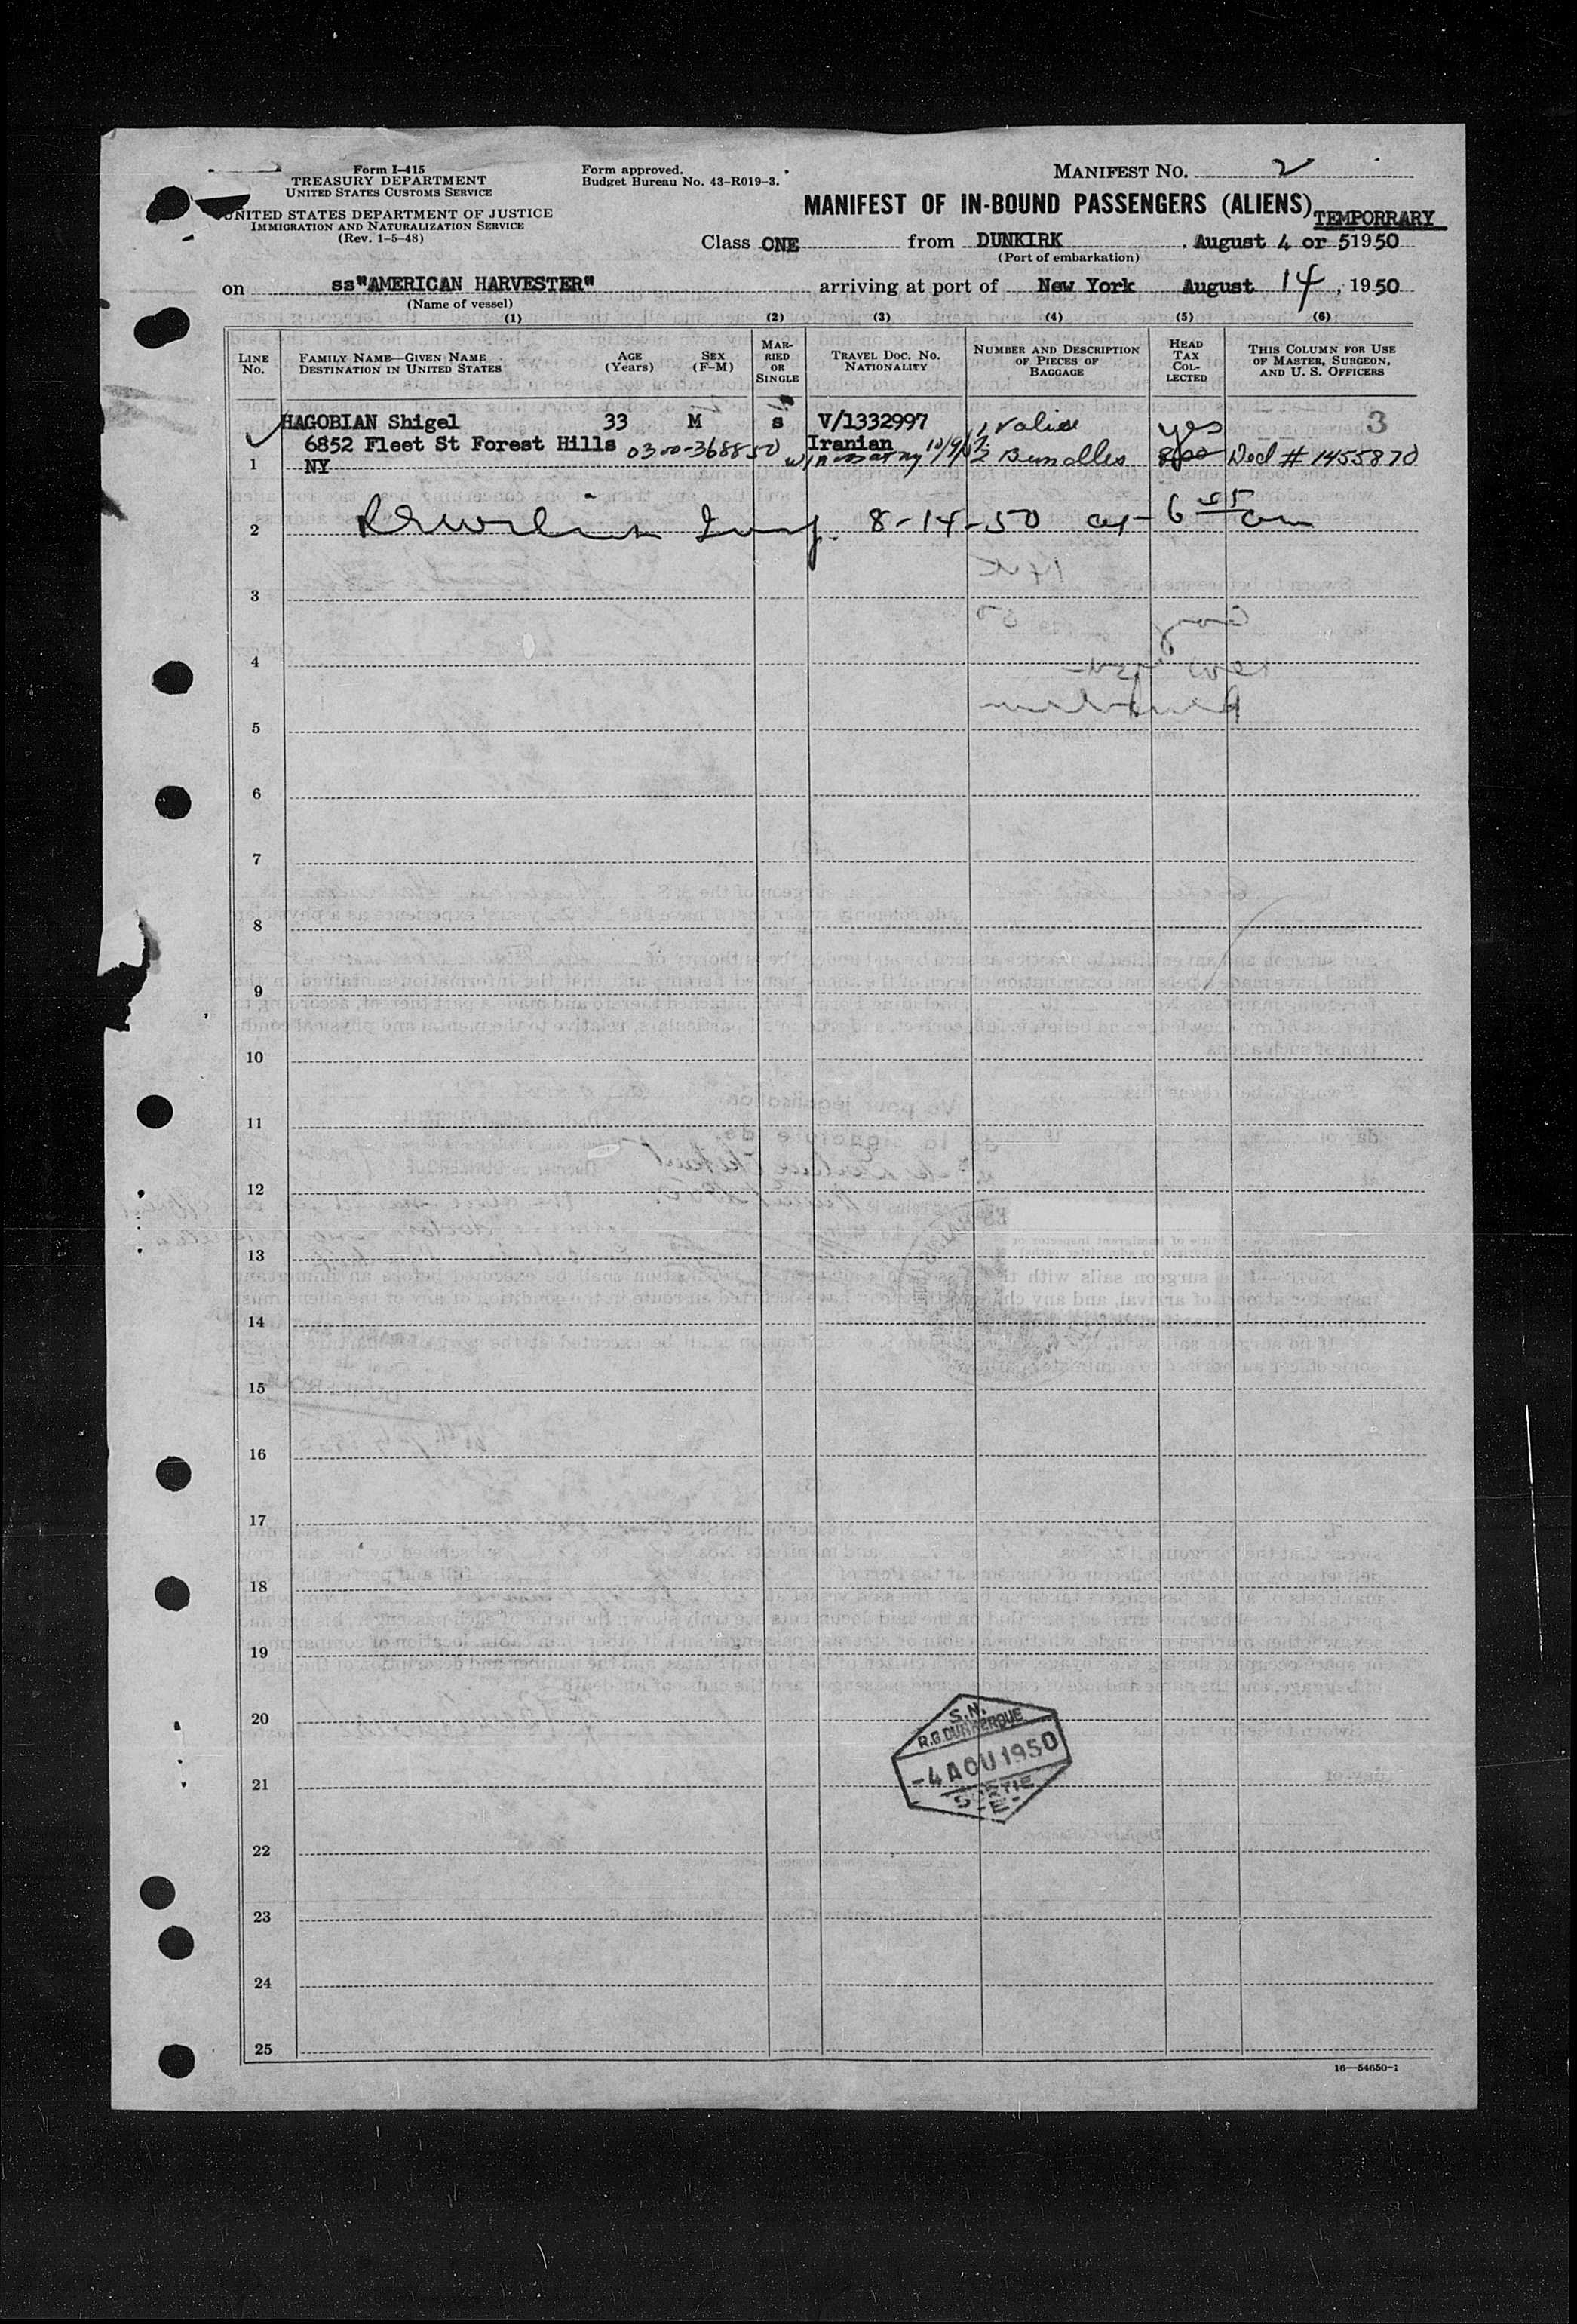 Form I-415
TREASURY DEPARTMENT
UNITED STATES CUSTOMS SERVICE
UNITED STATES DEPARTMENT OF JUSTICE
IMMIGRATION AND NATURALIZATION SERVICE
(Rev. 1-5-48)
Form approved.
Budget Bureau No. 43-R019-3.
MANIFEST NO. 2
MANIFEST OF IN-BOUND PASSENGERS (ALIENS) TEMPORRARY
Class ONE from DUNKIRK . August 4 or 5 1950
(Port of embarkation)
on ss"AMERICAN HARVESTER" arriving at port of New York August 14, 1950
(Name of vessel)
(1) (2) (3) (4) (5) (6)
LINE No.
FAMILY NAME—GIVEN NAME
DESTINATION IN UNITED STATES
AGE (Years)
SEX (F-M)
MARRIED OR SINGLE
TRAVEL DOC. NO.
NATIONALITY
NUMBER AND DESCRIPTION OF PIECES OF BAGGAGE
HEAD TAX COLLECTED
THIS COLUMN FOR USE OF MASTER, SURGEON, AND U. S. OFFICERS
HAGOBIAN Shigel 33 M s V/1332997 1 Valise yes 3
6852 Fleet St Forest Hills 0300-368850 Iranian 2 Bundles 800 Decl # 1455870
1 NY
2 8-14-50 at 6 05 am
3
4
5
6
7
8
9
10
11
12
13
14
15
16
17
18
19
20
S.N.
R.G. DUNKERQUE
-4 AOU 1950
SORTIE
-E-
21
22
23
24
25
16—54650-1